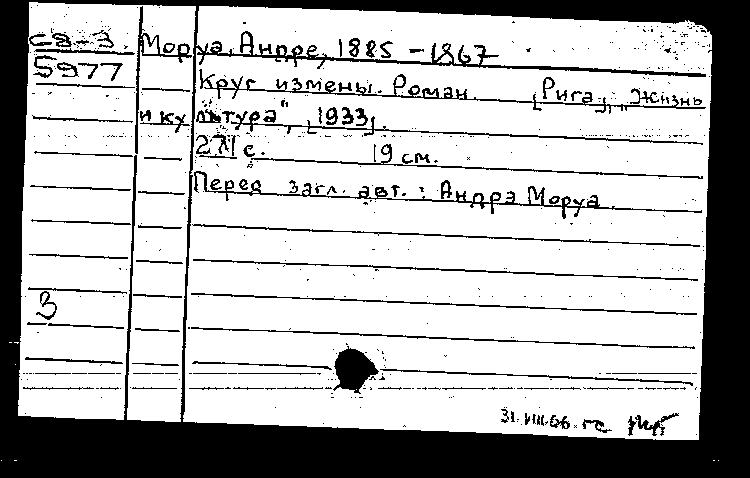 са-3. Моруа, Андре, 1885 - 1967
5977 Круг измены. Роман. [Рига], „Жизнь
и культура", [1933].
с. 19 см.
Перед загл. авт.: Андрэ Моруа
3
31.VIII.66. гс